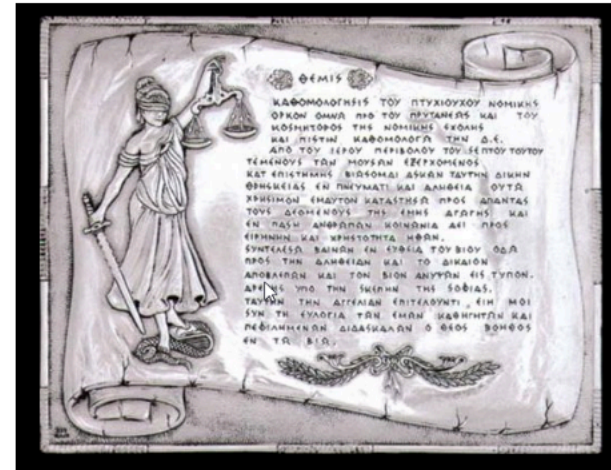 ΘΕΜΙΣ
ΚΑΘΟΜΟΛΟΓΗΣΙΣ ΤΟΥ ΠΤΥΧΙΟΥΧΟΥ ΝΟΜΙΚΗΣ
ΟΡΚΟΝ ΟΜΝΩ ΠΡΟ ΤΟΥ ΠΡΥΤΑΝΕΩΣ ΚΑΙ ΤΟΥ
ΚΟΣΜΗΤΟΡΟΣ ΤΗΣ ΝΟΜΙΚΗΣ ΣΧΟΛΗΣ
ΚΑΙ ΠΙΣΤΙΝ ΚΑΘΟΜΟΛΟΓΩ ΤΗΝ Δ.Ε.
ΑΠΟ ΤΟΥ ΙΕΡΟΥ ΠΕΡΙΒΟΛΟΥ ΤΟΥ ΣΕΠΤΟΥ ΤΟΥΤΟΥ
ΤΕΜΕΝΟΥΣ ΤΩΝ ΜΟΥΣΩΝ ΕΞΕΡΧΟΜΕΝΟΣ
ΚΑΤ ΕΠΙΣΤΗΜΗΝ ΒΙΩΣΟΜΑΙ ΑΣΚΩΝ ΤΑΥΤΗΝ ΔΙΚΗΝ
ΘΡΗΣΚΕΙΑΣ ΕΝ ΠΝΕΥΜΑΤΙ ΚΑΙ ΑΛΗΘΕΙΑ ΟΥΤΩ
ΧΡΗΣΙΜΟΝ ΕΜΑΥΤΟΝ ΚΑΤΑΣΤΗΣΩ ΠΡΟΣ ΑΠΑΝΤΑΣ
ΤΟΥΣ ΔΕΟΜΕΝΟΥΣ ΤΗΣ ΕΜΗΣ ΑΡΩΓΗΣ ΚΑΙ
ΕΝ ΠΑΣΗ ΑΝΘΡΩΠΩΝ ΚΟΙΝΩΝΙΑ ΑΕΙ ΠΡΟΣ
ΕΙΡΗΝΗΝ ΚΑΙ ΧΡΗΣΤΟΤΗΤΑ ΗΘΩΝ.
ΣΥΝΤΕΛΕΣΩ ΒΑΙΝΩΝ ΕΝ ΕΥΘΕΙΑ ΤΟΥ ΒΙΟΥ ΟΔΩ
ΠΡΟΣ ΤΗΝ ΑΛΗΘΕΙΑΝ ΚΑΙ ΤΟ ΔΙΚΑΙΟΝ
ΑΠΟΒΛΕΠΩΝ ΚΑΙ ΤΟΝ ΒΙΟΝ ΑΝΥΨΩΝ ΕΙΣ ΤΥΠΟΝ.
ΑΡΕΤΗΣ ΥΠΟ ΤΗΝ ΣΚΕΠΗΝ ΤΗΣ ΣΟΦΙΑΣ.
ΤΑΥΤΗΝ ΤΗΝ ΑΓΓΕΛΙΑΝ ΕΠΙΤΕΛΟΥΝΤΙ, ΕΙΗ ΜΟΙ
ΣΥΝ ΤΗ ΕΥΛΟΓΙΑ ΤΩΝ ΕΜΩΝ ΚΑΘΗΓΗΤΩΝ ΚΑΙ
ΠΕΦΙΛΗΜΕΝΩΝ ΔΙΔΑΣΚΑΛΩΝ Ο ΘΕΟΣ ΒΟΗΘΟΣ
ΕΝ ΤΩ ΒΙΩ.